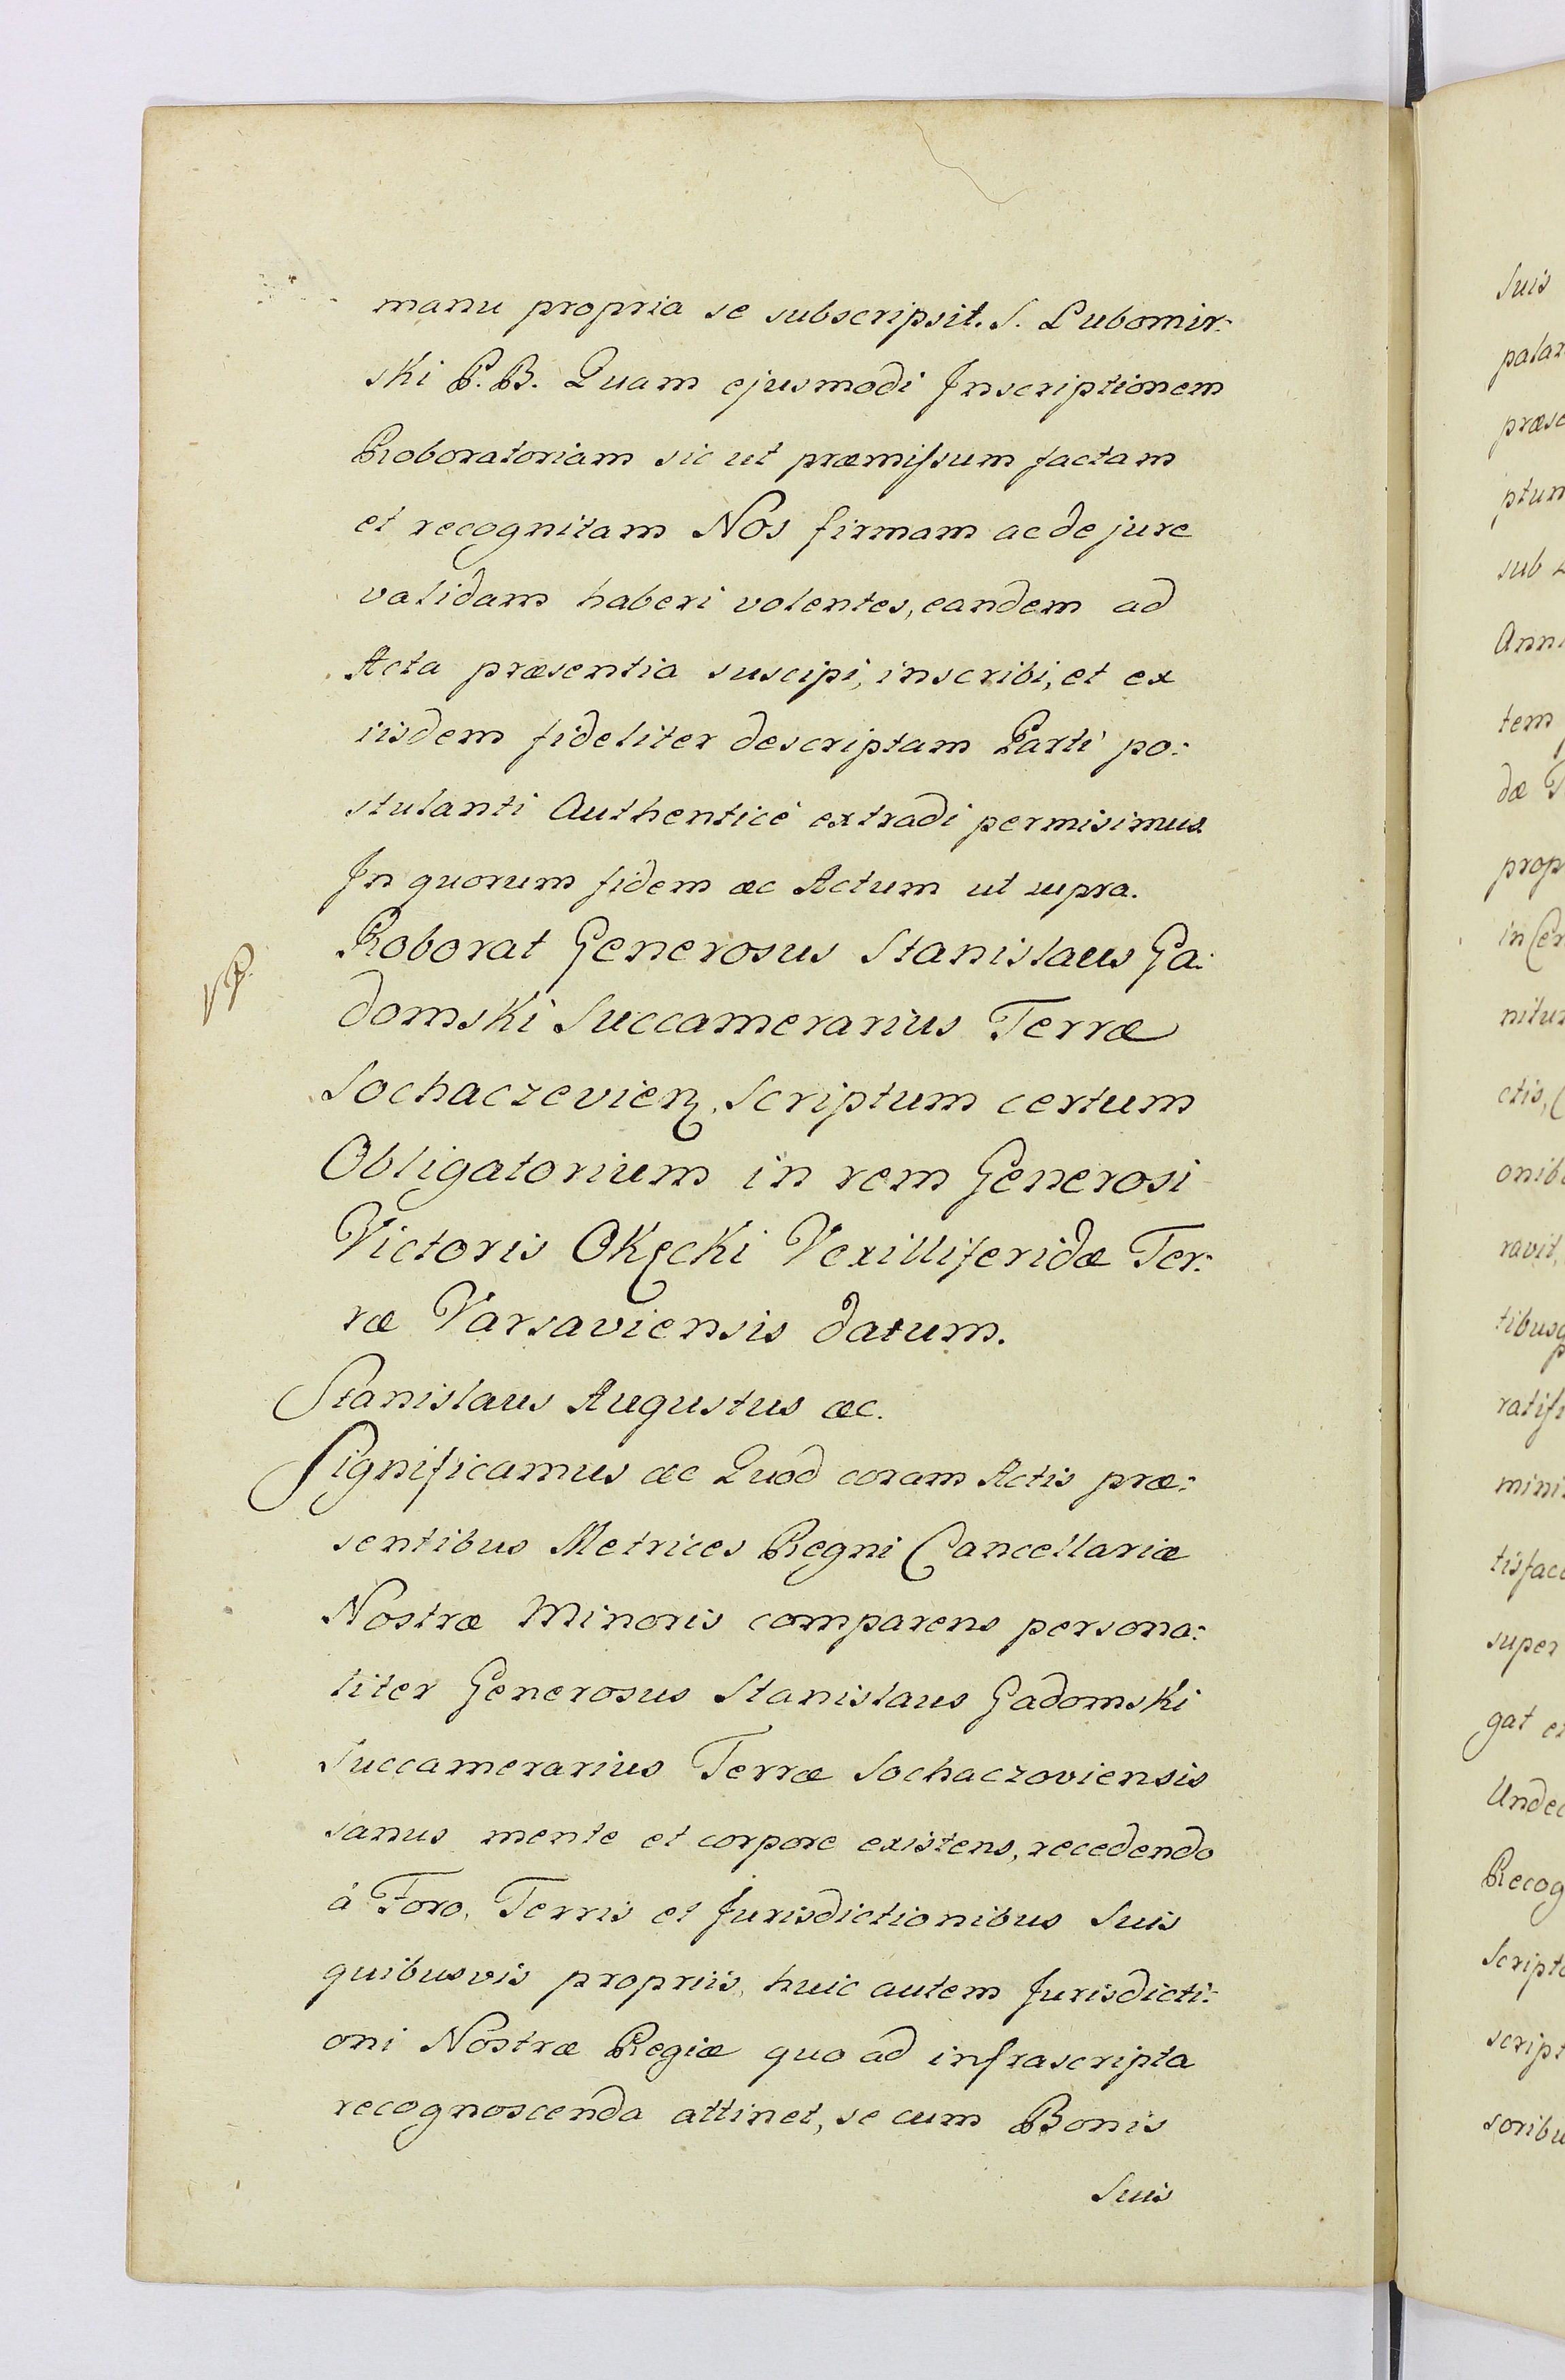 manu propria se subscripsit. S. Lubomir:
ski P. B. Quam ejusmodi Inscriptionem
Roboratoriam sic ut præmissum factam
et recognitam Nos firmam ac de jure
validam haberi volentes, eandem ad
Acta præsentia suscipi, inscribi, et ex
iisdem fideliter descriptam Parti po:
stulanti Authenticè extradi permisimus
In quorum fidem æc Actum ut supra.
Roborat Generosus Stanislaus Ga:
domski Succamerarius Terræ
Sochaczevien. Scriptum certum
Obligatorium in rem Generosi
Victoris Okęcki Vexilliferidæ Ter:
ræ Varsaviensis datum.
Stanislaus Augustus æc.
Significamus æc Quod coram Actis præ:
sentibus Metrices Regni Cancellariæ
Nostræ Minoris comparens persona:
liter Generosus Stanislaus Gadomski
Succamerarius Terræ Sochaczoviensis
sanus mente et corpore existens, recedendo
à Foro, Terris et Jurisdictionibus Suis
quibusvis propriis, huic autem Jurisdicti:
oni Nostræ Regiæ quo ad infrascripta
recognoscenda attinet, se cum Bonis
Suis